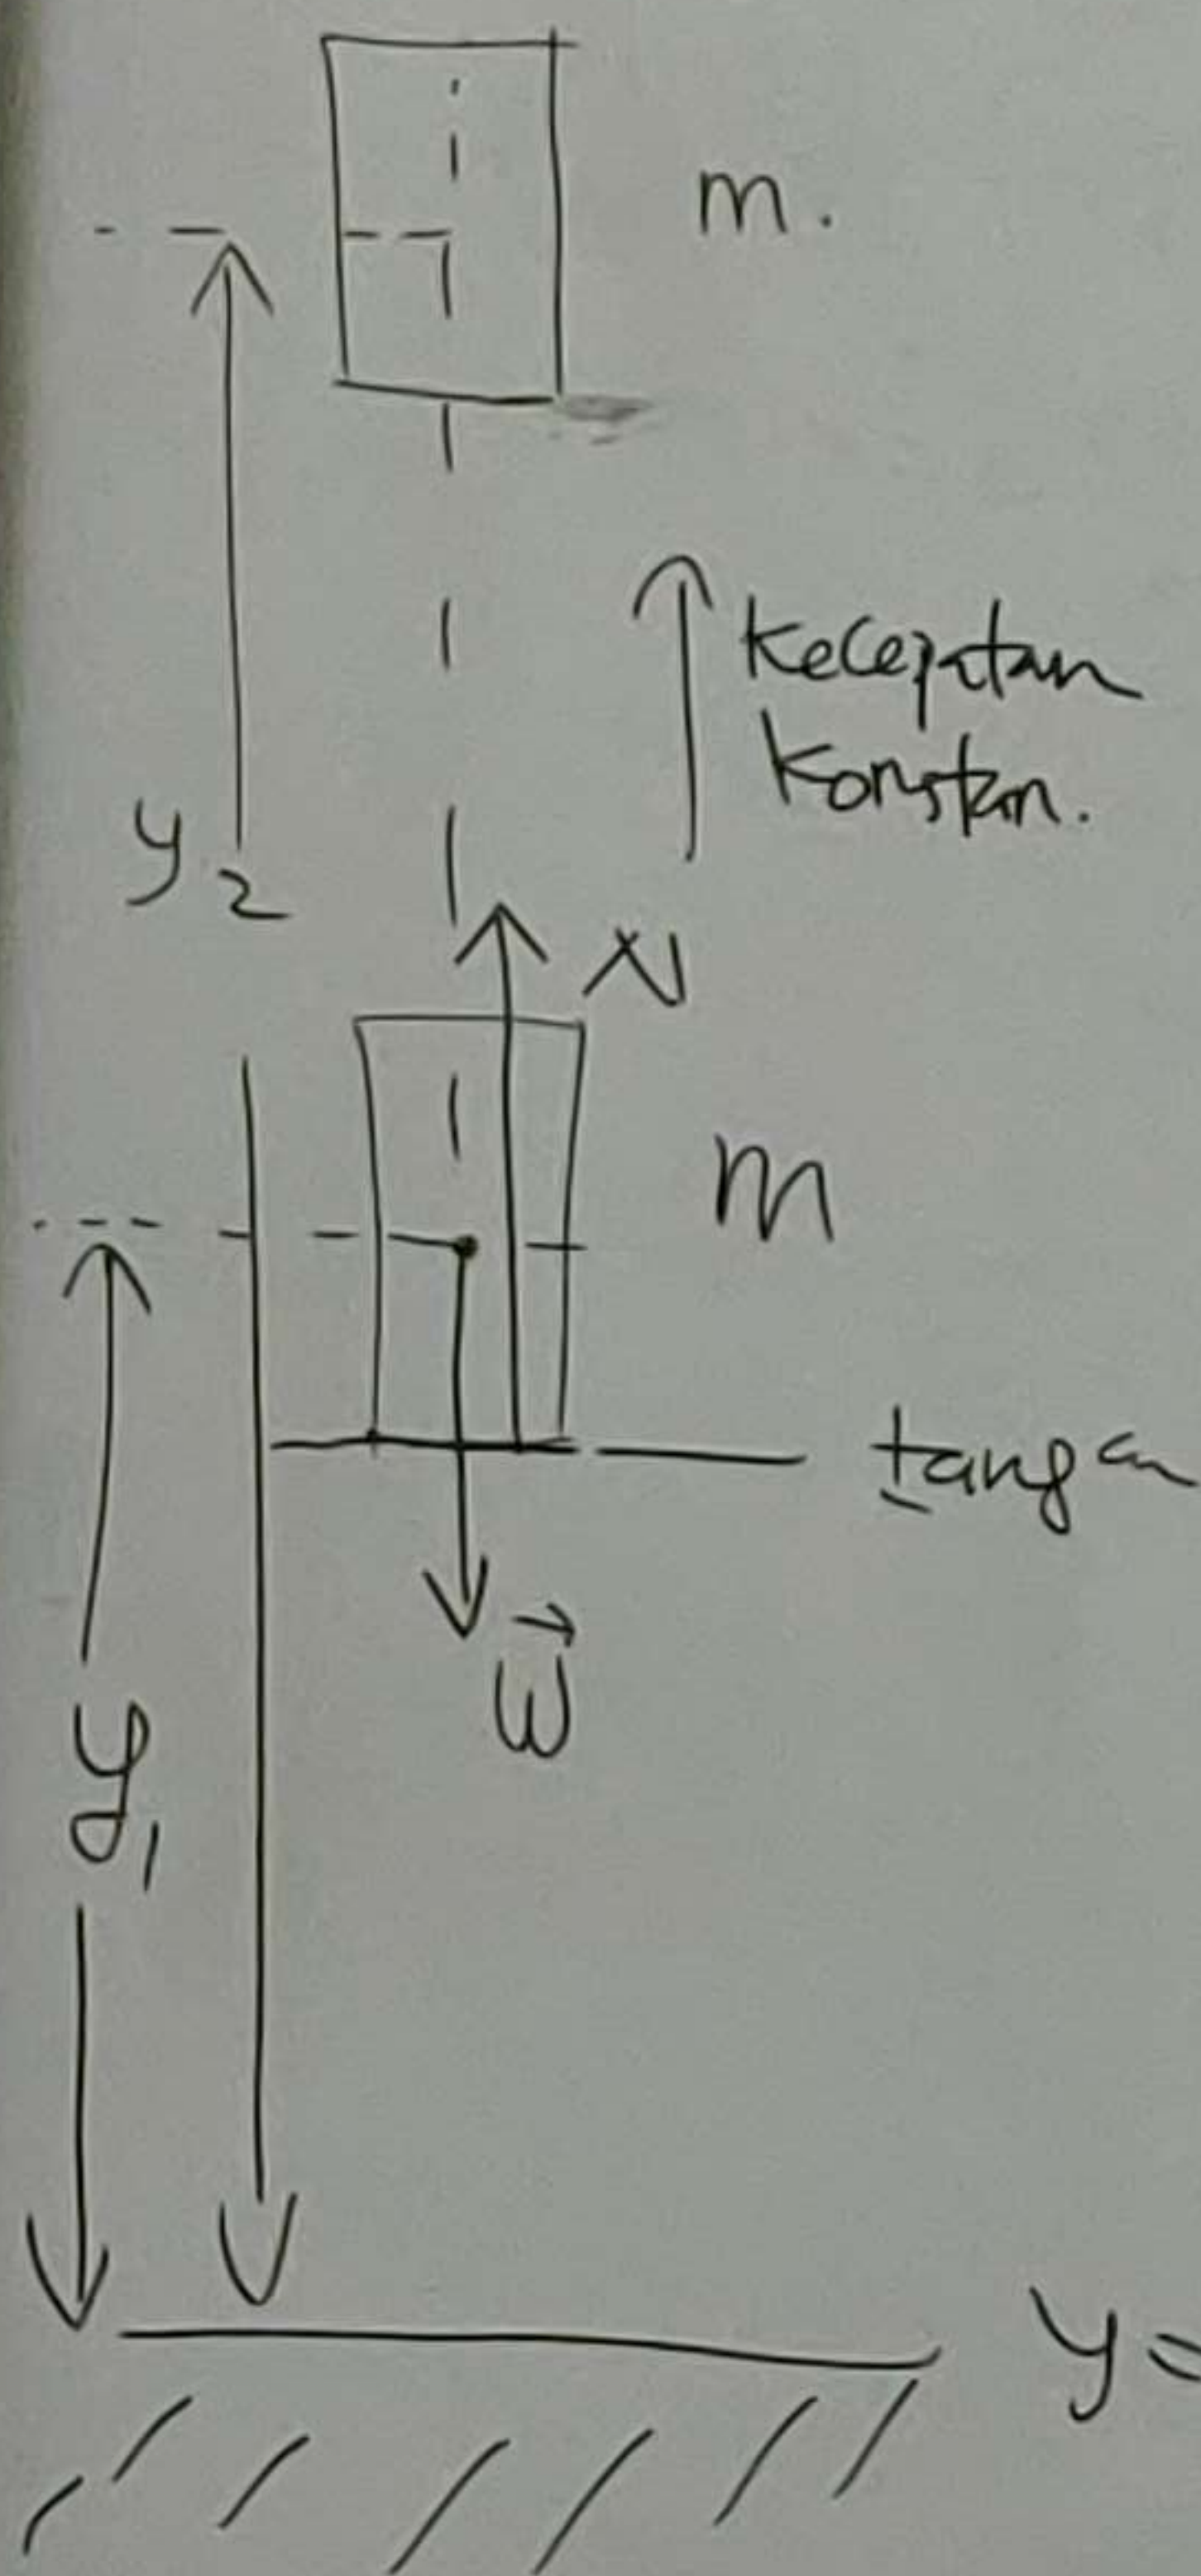 m.
kecepatan
konstan.
y₂
N
m
tangan
w⃗
y₁
y=